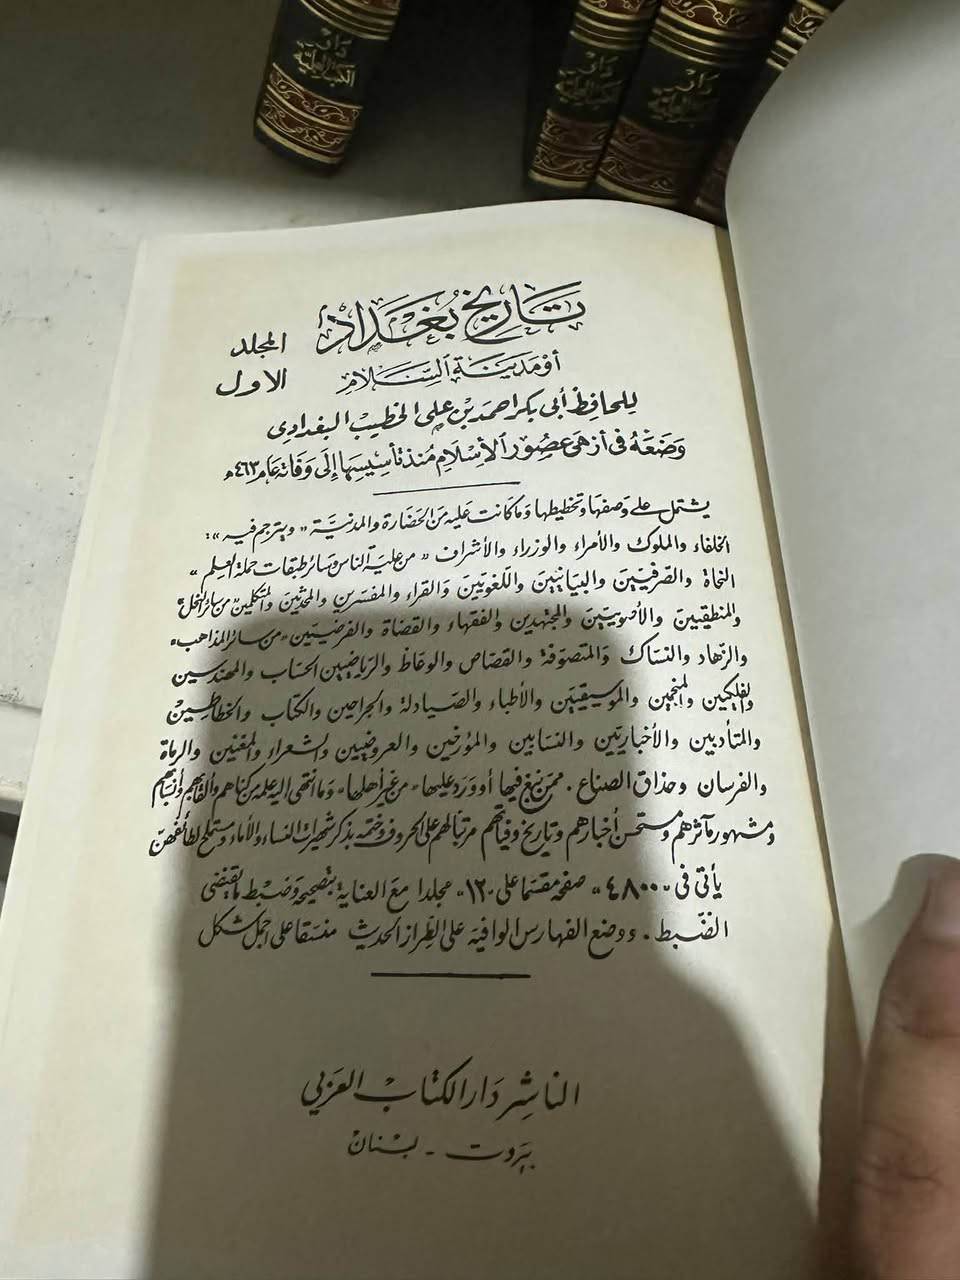 دار
الكتب العلمية
دار
الكتب العلمية
دار
الكتب العلمية
تاريخ بغداد
المجلد
الاول
أو مدينة السلام
للحافظ أبي بكر احمد بن علي الخطيب البغدادي
وضعه في أزهى عصور الإسلام منذ تأسيسها إلى وفاته عام ٤٦٣ه
يشتمل على وصفها وتخطيطها وما كانت عليه من الحضارة والمدنية « ويترجم فيه »:
الخلفاء والملوك والأمراء والوزراء والأشراف « من علية الناس وسائر طبقات حملة العلم »
النحاة والصرفيين والبيانيين واللغويين والقراء والمفسرين والمحدثين والمتكلمين من سائر النحل
والمنطقيين والأصوليين والمجتهدين والفقهاء والقضاة والفرضيين « من سائر المذاهب »
والزهاد والنساك والمتصوفة والقصاص والوعاظ والرياضيين الحساب والمهندسين
والفلكيين والمنجمين والموسيقيين والأطباء والصيادلة والجراحين والكتاب والخطاطين
والمتأدبين والأخباريين والنسابين والمؤرخين والعروضيين والشعراء والمغنين والرماة
والفرسان وحذاق الصناع . ممن نبغ فيها أو ورد عليها « من غير أهلها » وما انتهى اليه علمه من كناهم وألقابهم وأنسابهم
ومشهور مآثرهم ومستحسن أخبارهم وتاريخ وفياتهم مرتبا لهم على الحروف وختمه بذكر شهيرات النساء والأماء ومستملح لطائفهن
يأتي في « ٤٨٠٠ » صفحة مقسما على « ١٢ » مجلدا مع العناية بتصحيحه وضبط ما يقتضى
الضبط . ووضع الفهارس الوافية على الطراز الحديث منسقا على اجمل شكل
الناشر دار الكتاب العربي
بيروت - لبنان